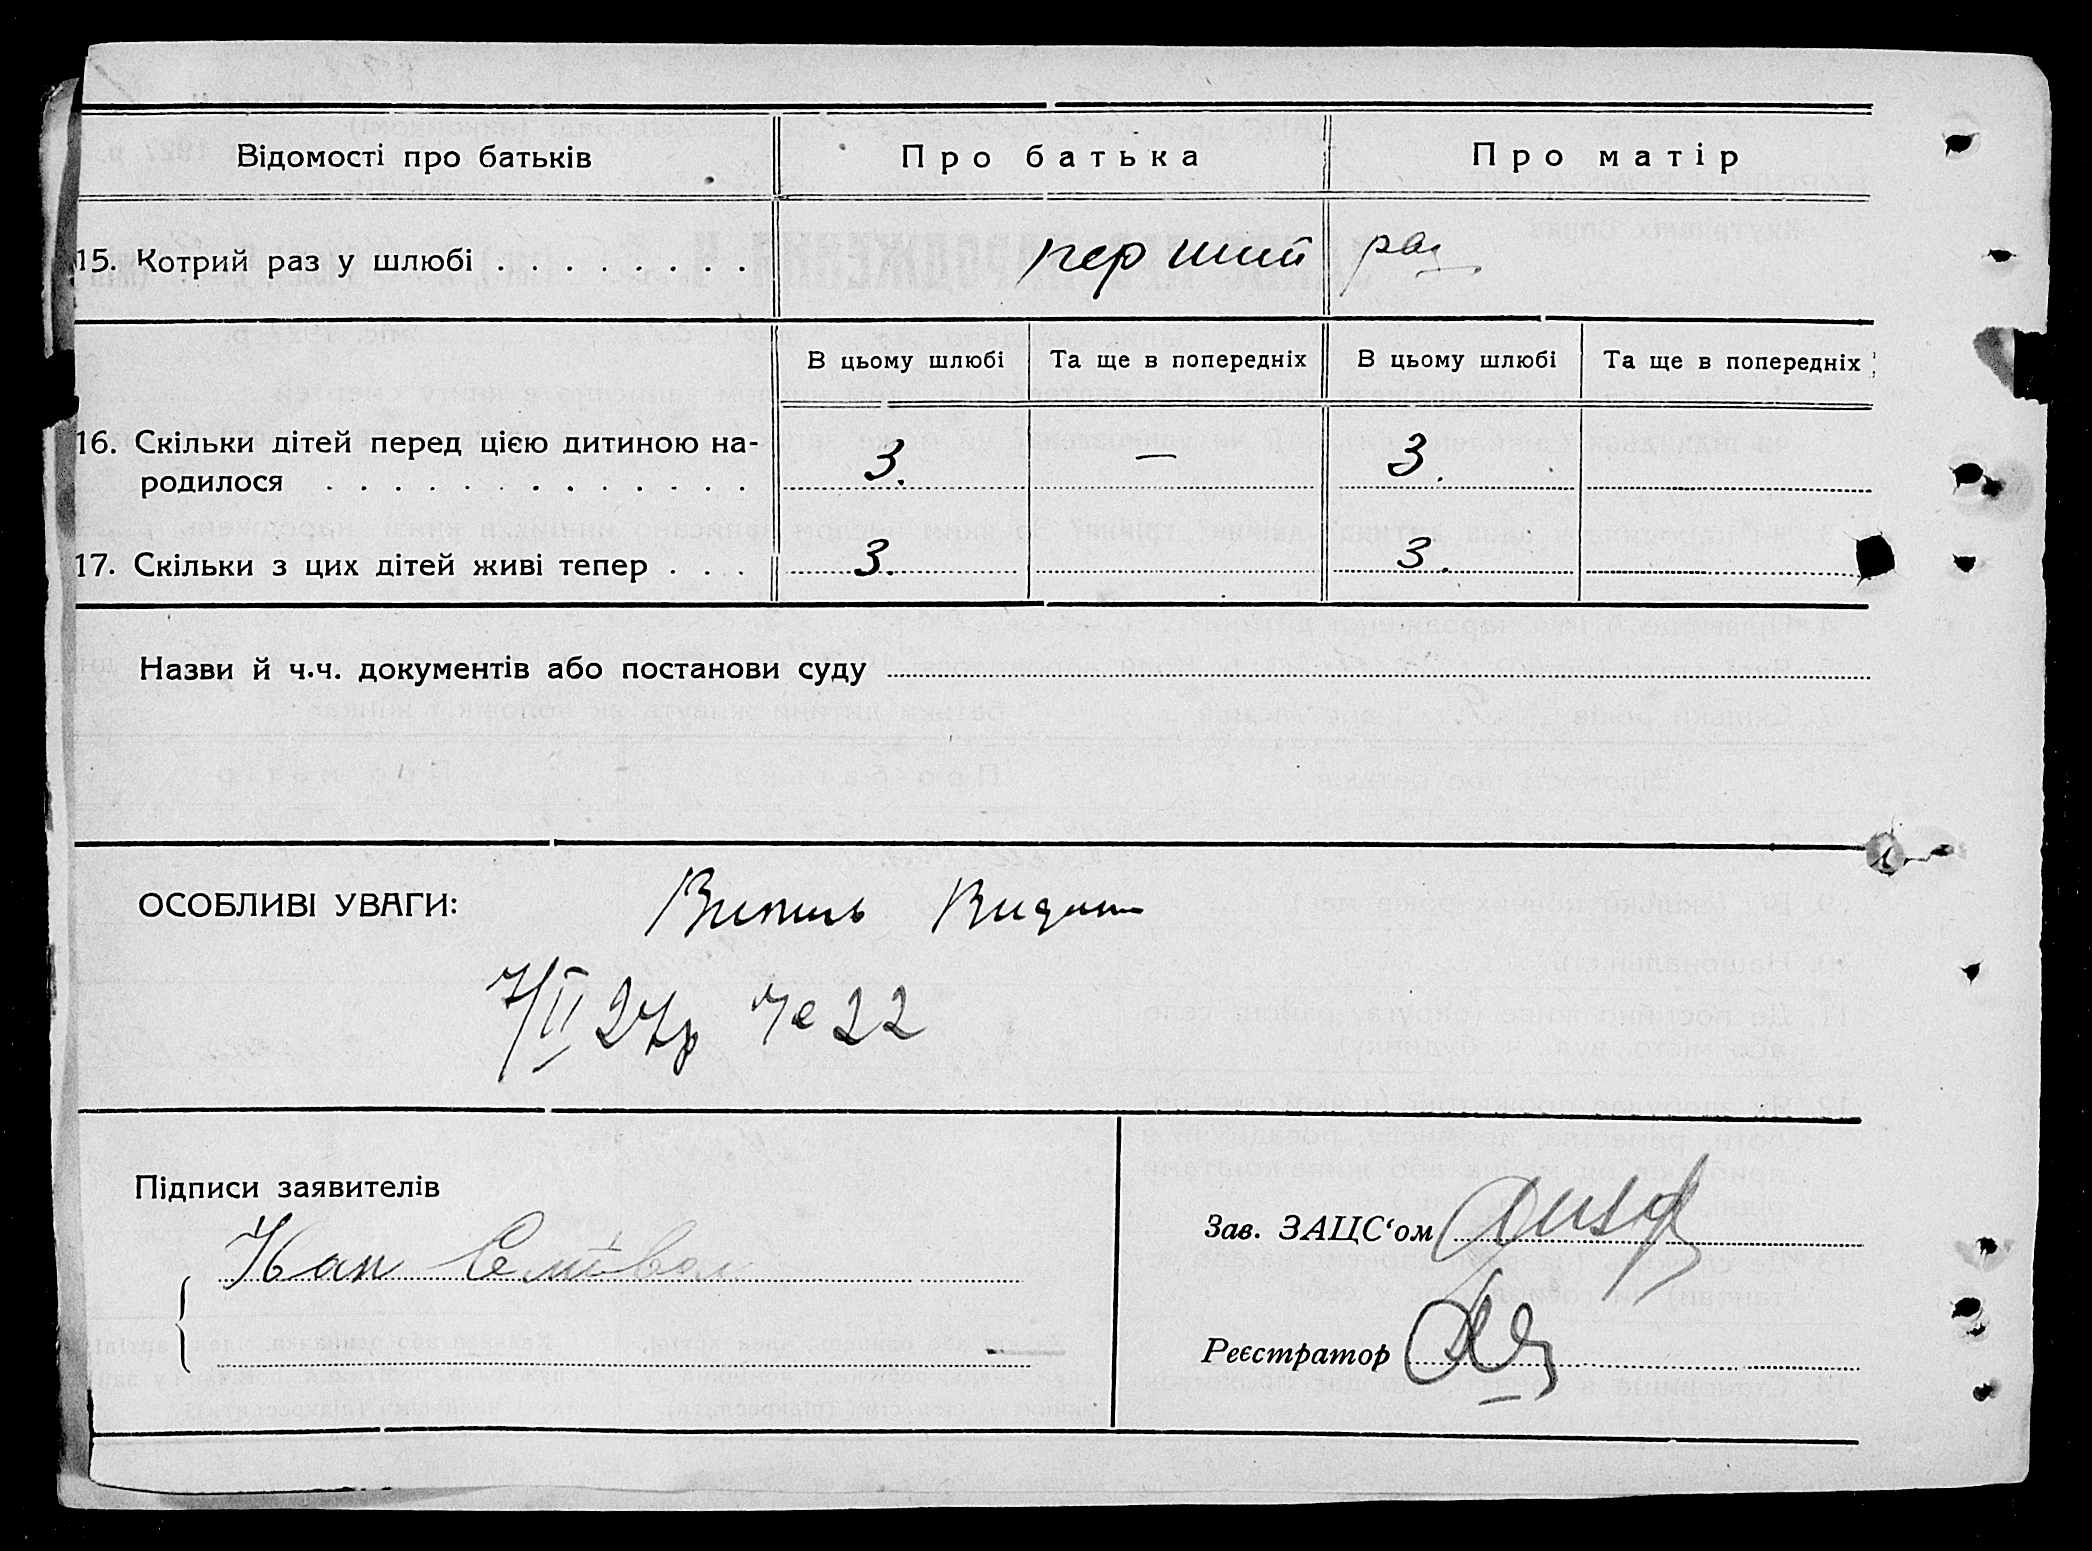 Відомості про батьків Про батька Про матір
15. Котрий раз у шлюбі . . . . . . . . перший раз
В цьому шлюбі Та ще в попередніх В цьому шлюбі Та ще в попередніх
16. Скільки дітей перед цією дитиною на-
родилося . . . . . . . . . . . . . 3. — 3.
17. Скільки з цих дітей живі тепер . . . 3. 3.
Назви й ч.ч. документів або постанови суду
ОСОБЛИВІ УВАГИ:
7/II 27р 22
Підписи заявителів
Зав. ЗАЦС‘ом
Реєстратор